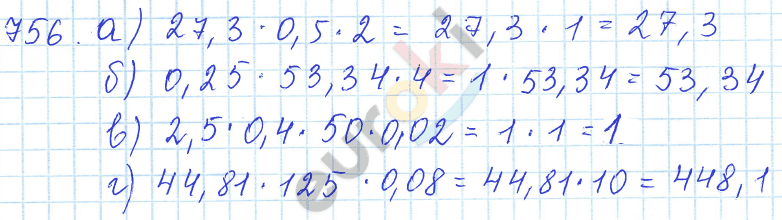 756. а) 27,3 · 0,5 · 2 = 27,3 · 1 = 27,3
б) 0,25 · 53,34 · 4 = 1 · 53,34 = 53,34
в) 2,5 · 0,4 · 50 · 0,02 = 1 · 1 = 1.
г) 44,81 · 125 · 0,08 = 44,81 · 10 = 448,1
euroki